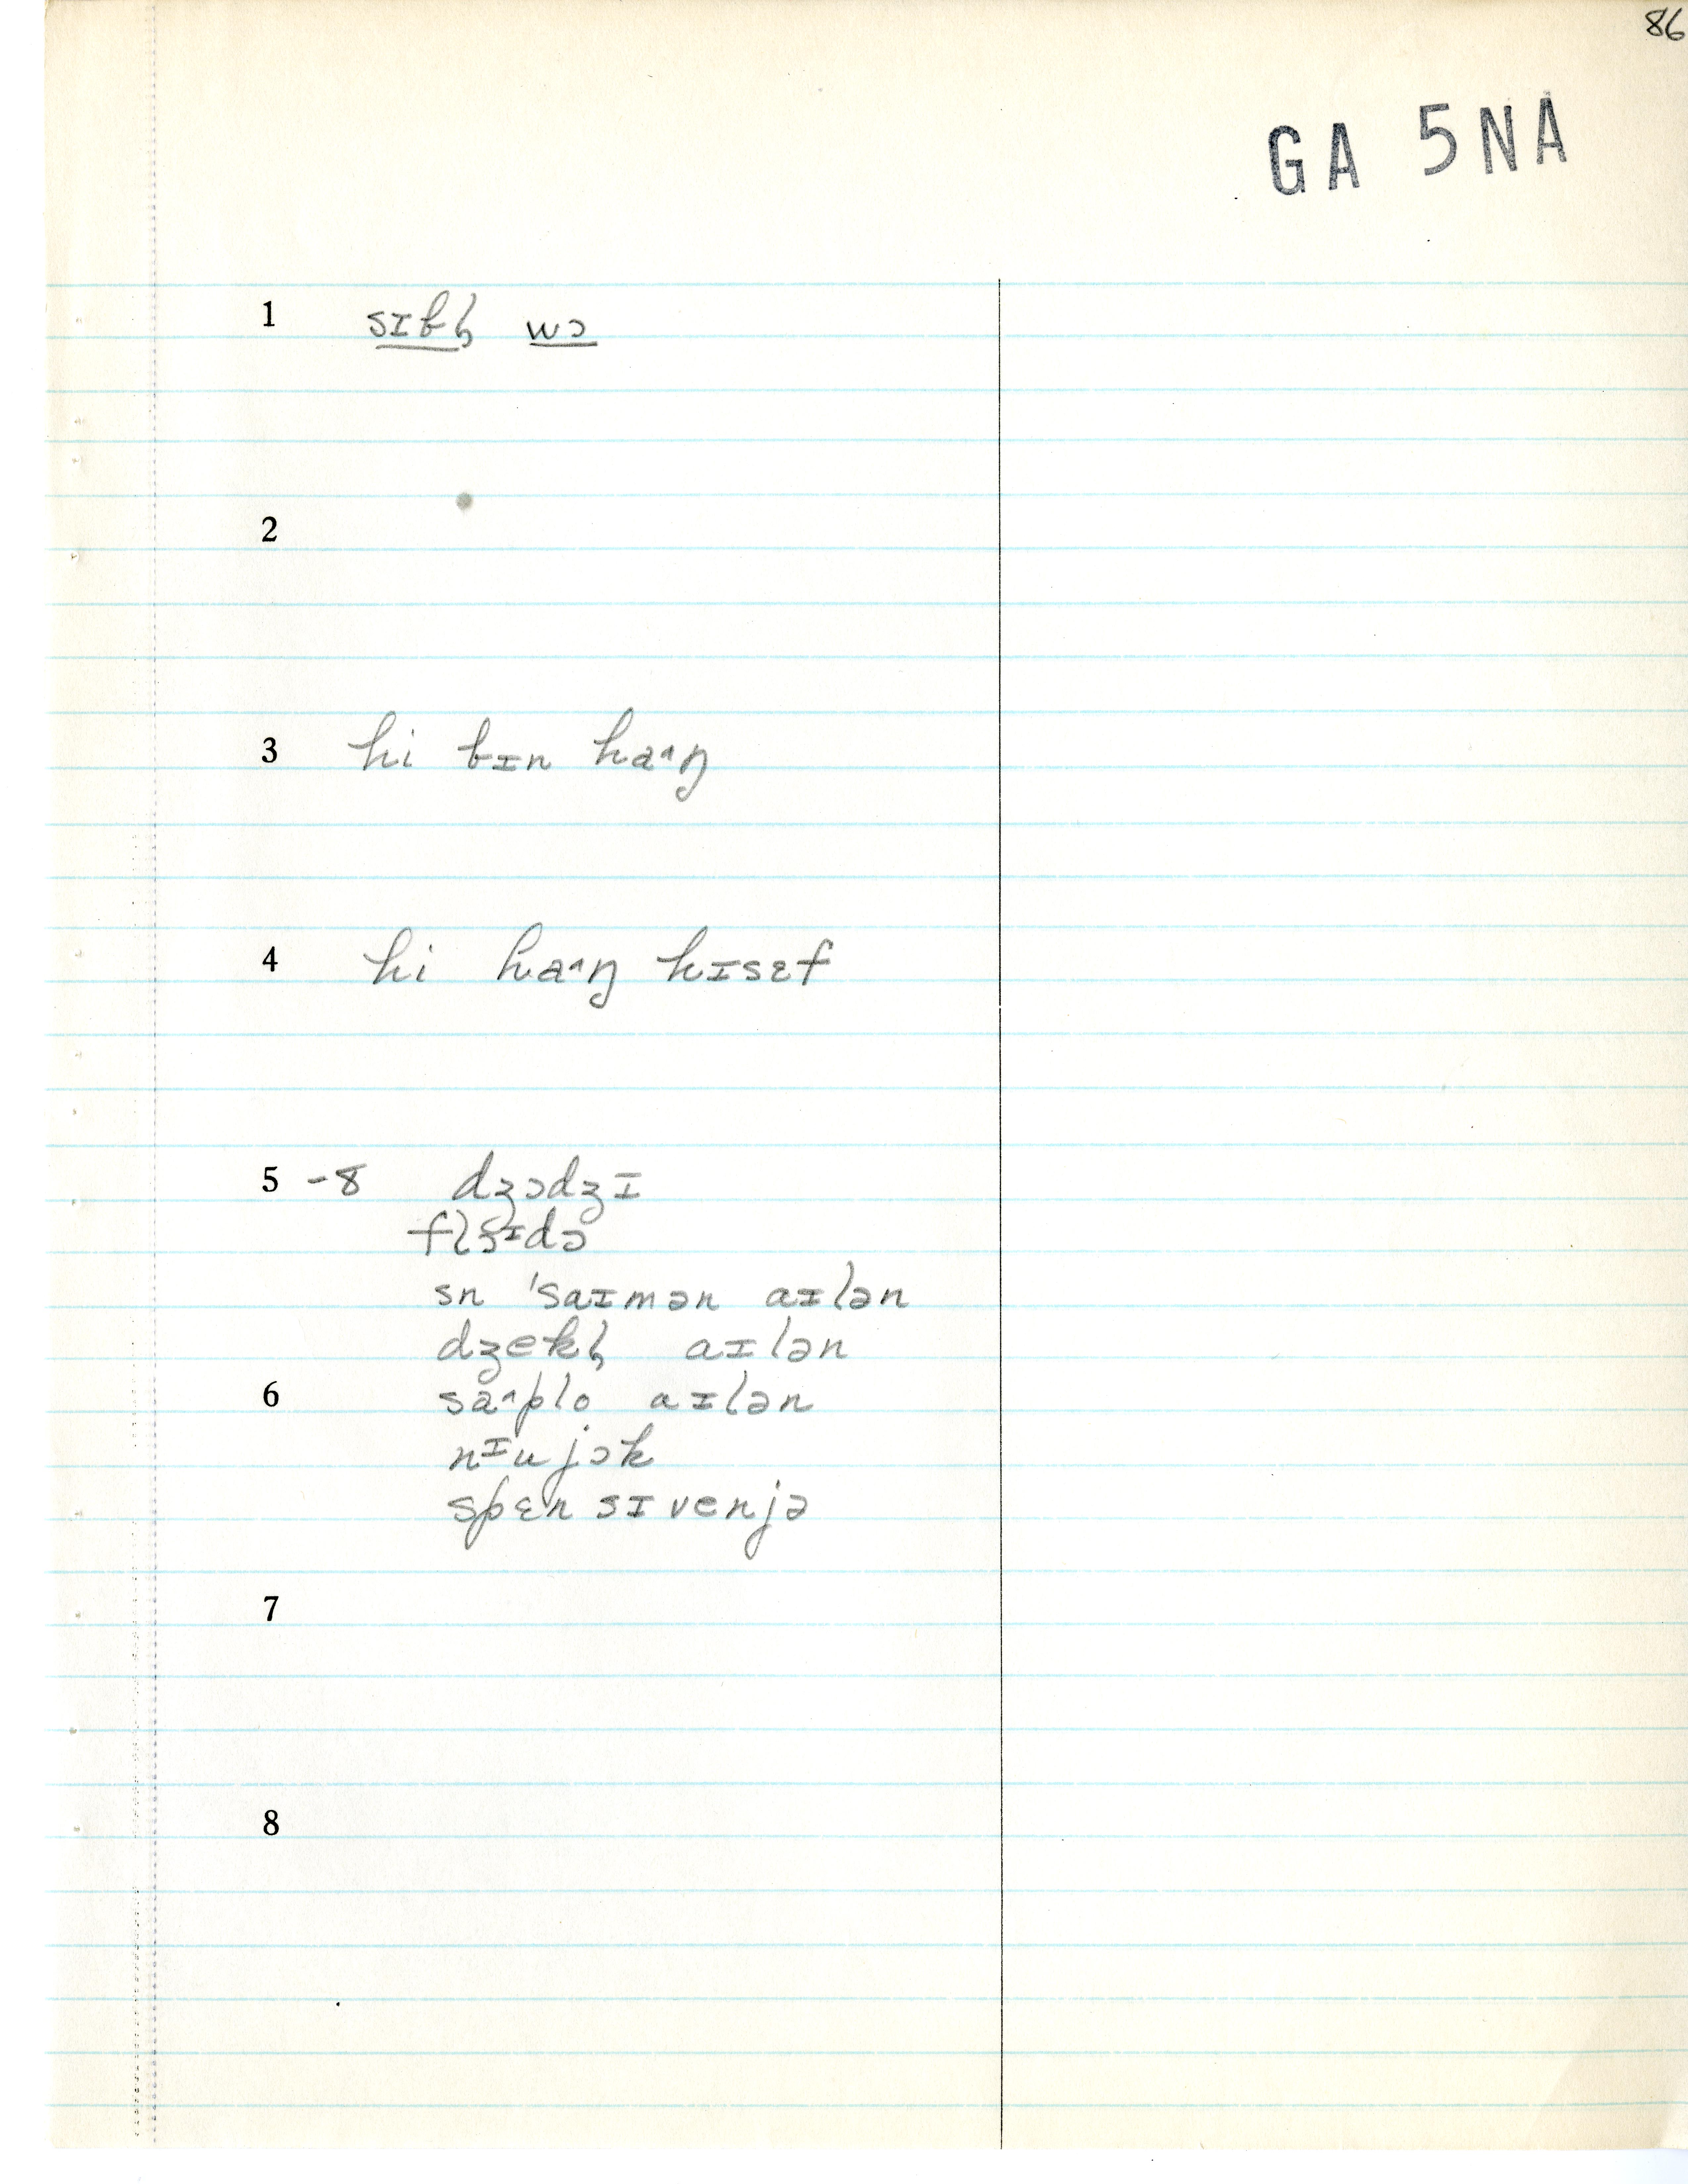 86
GA 5NA
1 sɪbl̩ wɔ
2
3 hi bɪn haˆŋ
4 hi haˆŋ hɪsɛf
5 -8 dʒɔdʒɪ
sn 'saɪmən aɪlən
dʒekl̩ aɪlən
6 saˆplo aɪlən
nɪu jɔk
spɛn sɪ venjə
7
8